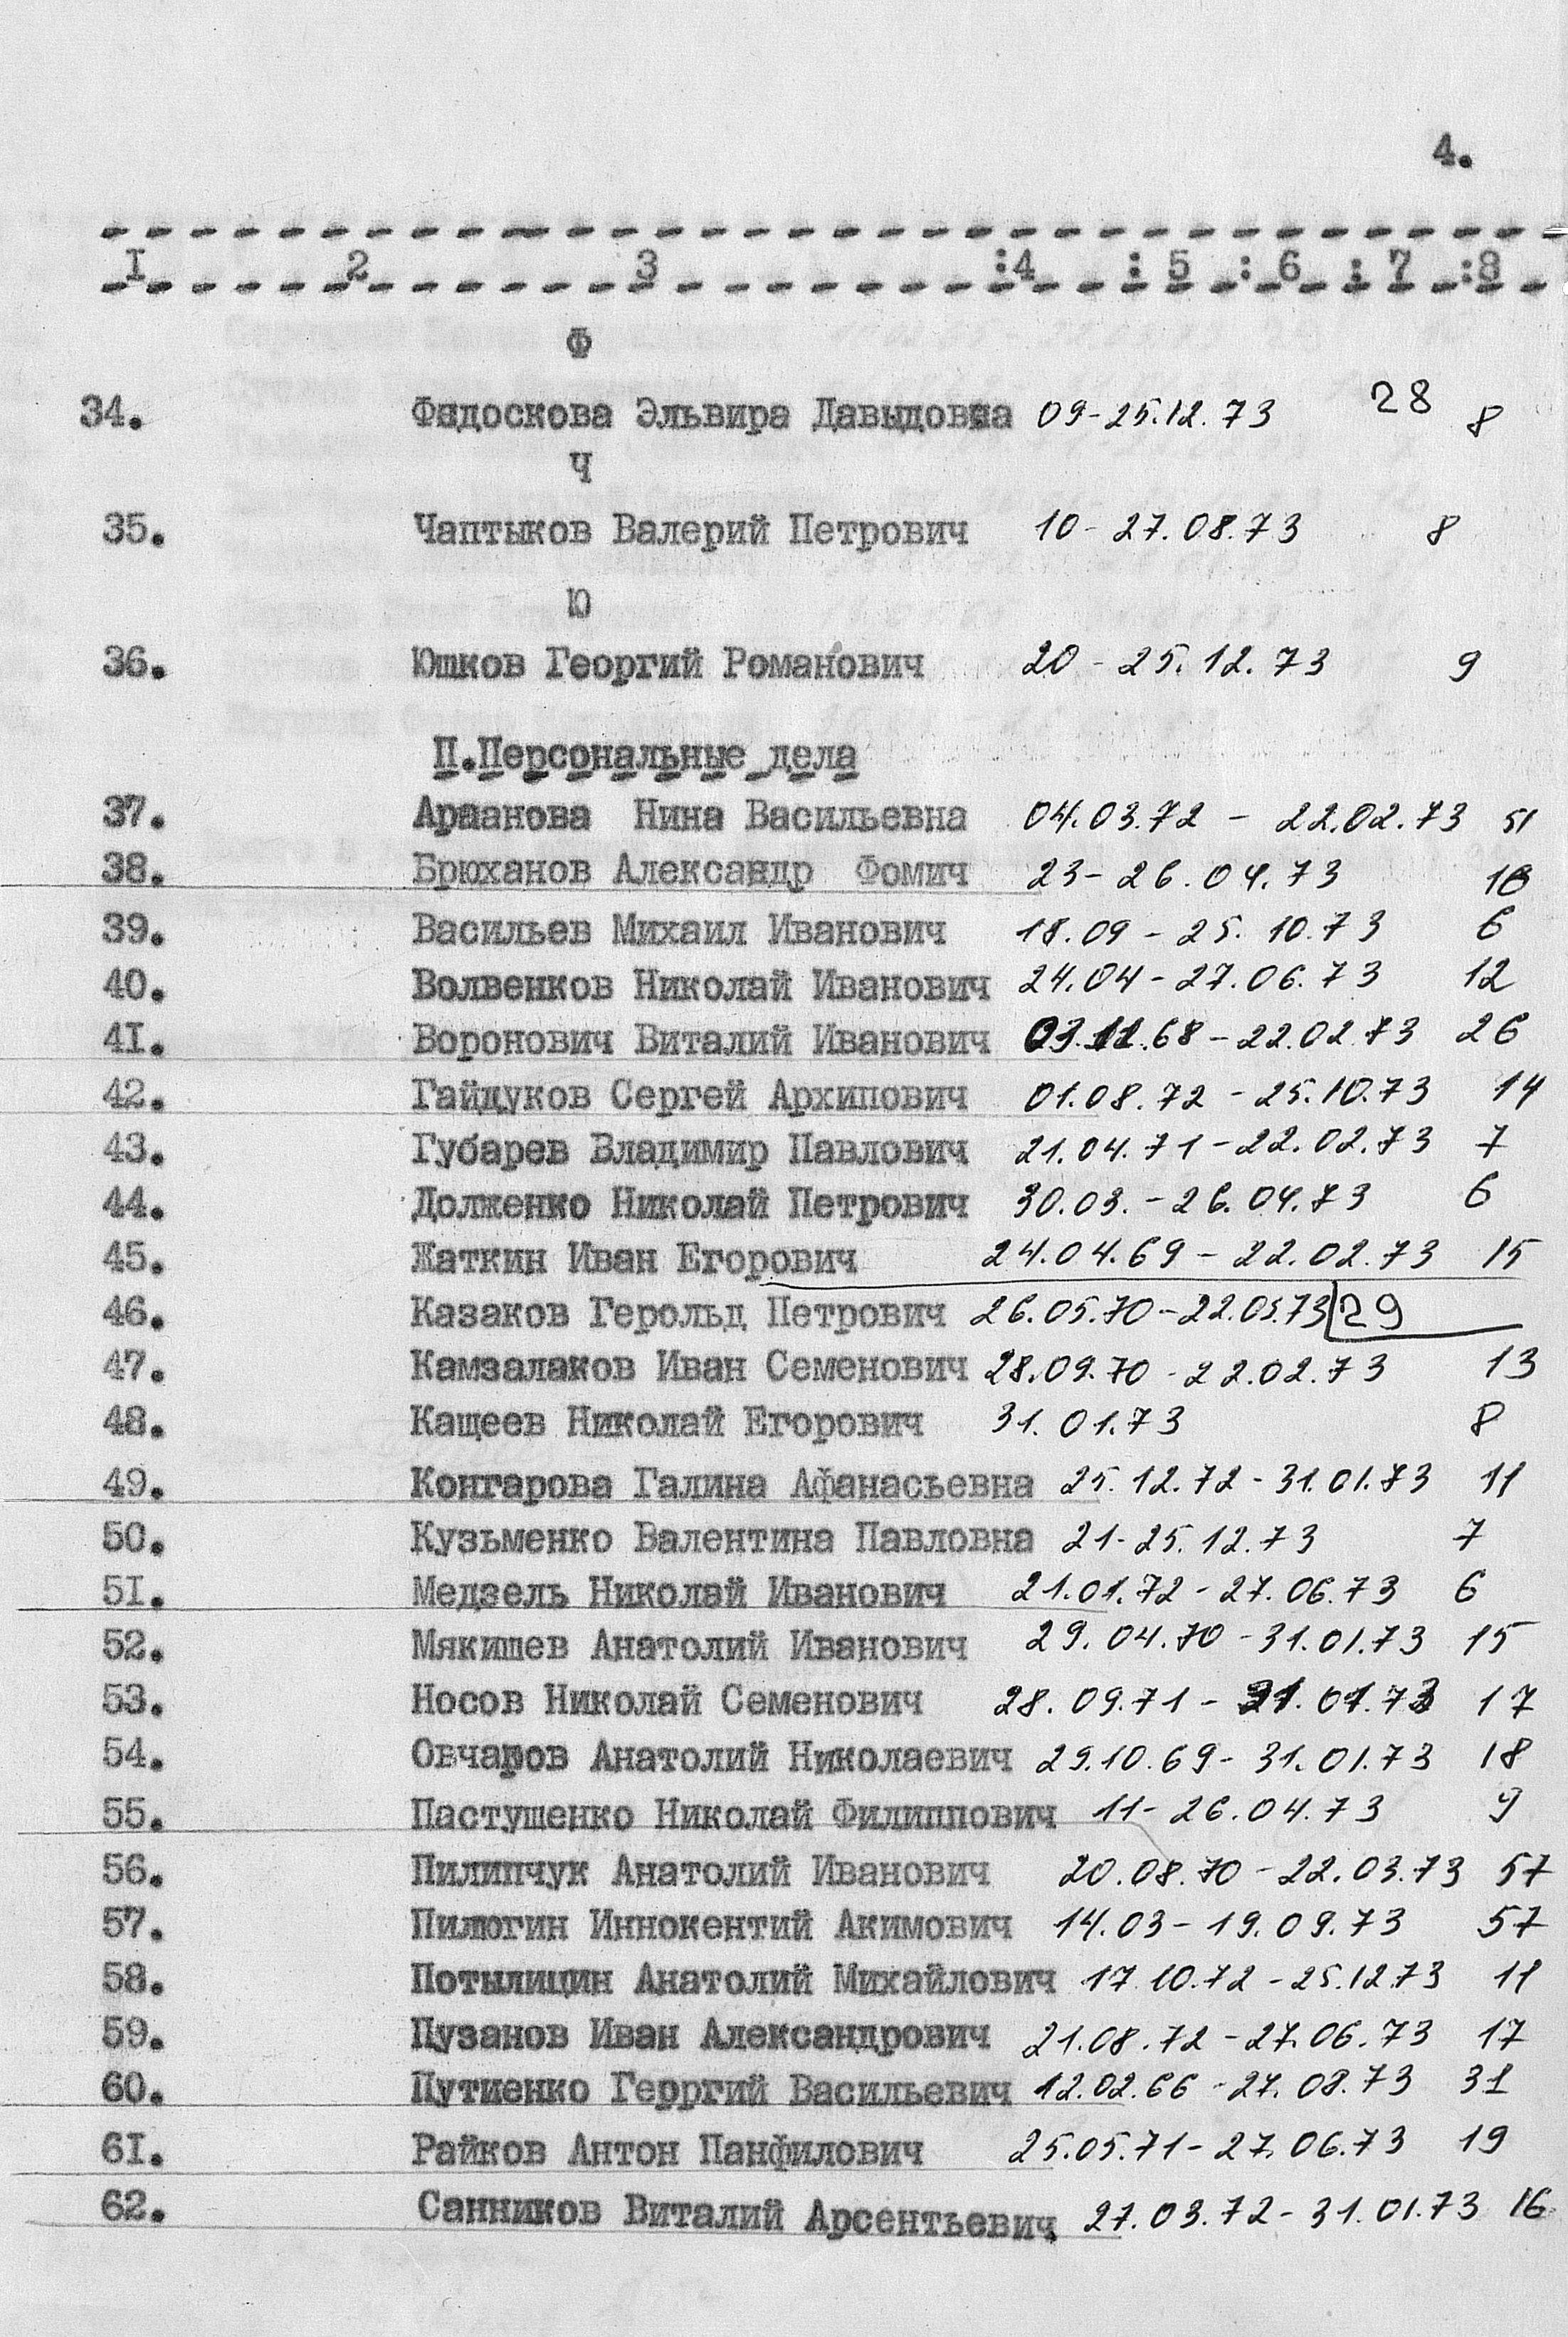 4.
I 2 3 :4 : 5 : 6 : 7 :8
Ф
34. Фядоскова Эльвира Давыдовна 09-25.12.73 28 8
Ч
35. Чаптыков Валерий Петрович 10-27.08.73 8
Ю
36. Юшков Георгий Романович 20-25.12.73 9
П.Персональные дела
37. Араанова Нина Васильевна 04.03.72 - 22.02.73 51
38. Брюханов Александр Фомич 23-26.04.73 18
39. Васильев Михаил Иванович 18.09-25.10.73 6
40. Волвенков Николай Иванович 24.04-27.06.73 12
4I. Воронович Виталий Иванович 03.11.68-22.02.73 26
42. Гайдуков Сергей Архипович 01.08.72-25.10.73 14
43. Губарев Владимир Павлович 21.04.71-22.02.73 7
44. Долженко Николай Петрович 30.03.-26.04.73 6
45. Жаткин Иван Егорович 24.04.69-22.02.73 15
46. Казаков Герольд Петрович 26.05.70-22.05.73 29
47. Камзалаков Иван Семенович 28.09.70-22.02.73 13
48. Кащеев Николай Егорович 31.01.73 8
49. Конгарова Галина Афанасьевна 25.12.72-31.01.73 11
50. Кузьменко Валентина Павловна 21-25.12.73 7
5I. Медзель Николай Иванович 21.01.72-27.06.73 6
52. Мякишев Анатолий Иванович 29.04.70-31.01.73 15
53. Носов Николай Семенович 28.09.71-31.01.73 17
54. Овчаров Анатолий Николаевич 29.10.69-31.01.73 18
55. Пастушенко Николай Филиппович 11-26.04.73 9
56. Пилипчук Анатолий Иванович 20.08.70-22.03.73 57
57. Пилюгин Иннокентий Акимович 14.03-19.09.73 57
58. Потылицин Анатолий Михайлович 17.10.72-25.12.73 11
59. Пузанов Иван Александрович 21.08.72-27.06.73 17
60. Путиенко Геррги​й Васильевич 12.02.66-27.08.73 31
6I. Райков Антон Панфилович 25.05.71-27.06.73 19
62. Санников Виталий Арсентьевич 27.03.72-31.01.73 16